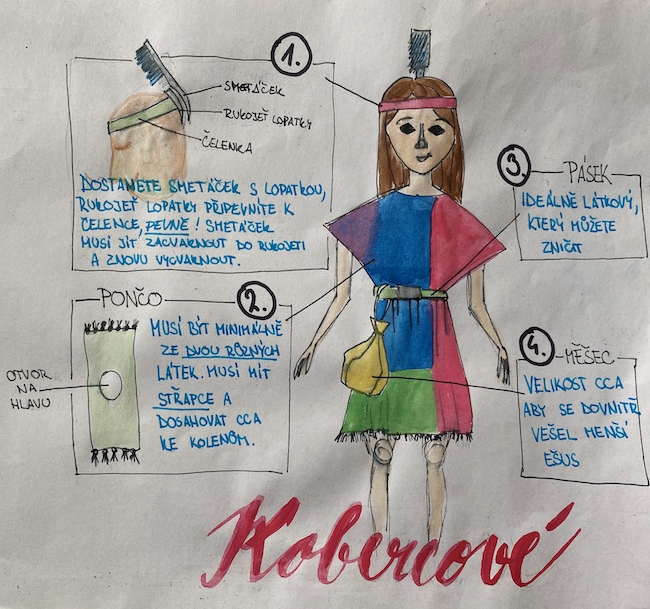 1.
SMETÁČEK
RUKOJEŤ LOPATKY
ČELENKA
DOSTANETE SMETÁČEK S LOPATKOU,
RUKOJEŤ LOPATKY PŘIPEVNÍTE K
ČELENCE, PEVNĚ! SMETÁČEK
MUSÍ JÍT ZACVAKNOUT DO RUKOJETI
A ZNOVU VYCVAKNOUT.
PONČO
2.
OTVOR
NA
HLAVU
MUSÍ BÝT MINIMÁLNĚ
ZE DVOU RŮZNÝCH
LÁTEK. MUSÍ MÍT
STŘAPCE A
DOSAHOVAT CCA
KE KOLENŮM.
3.
PÁSEK
IDEÁLNĚ LÁTKOVÝ,
KTERÝ MŮŽETE
ZNIČIT
4.
MĚŠEC
VELIKOST CCA
ABY SE DOVNITŘ
VEŠEL MENŠÍ
EŠUS
Kobercové